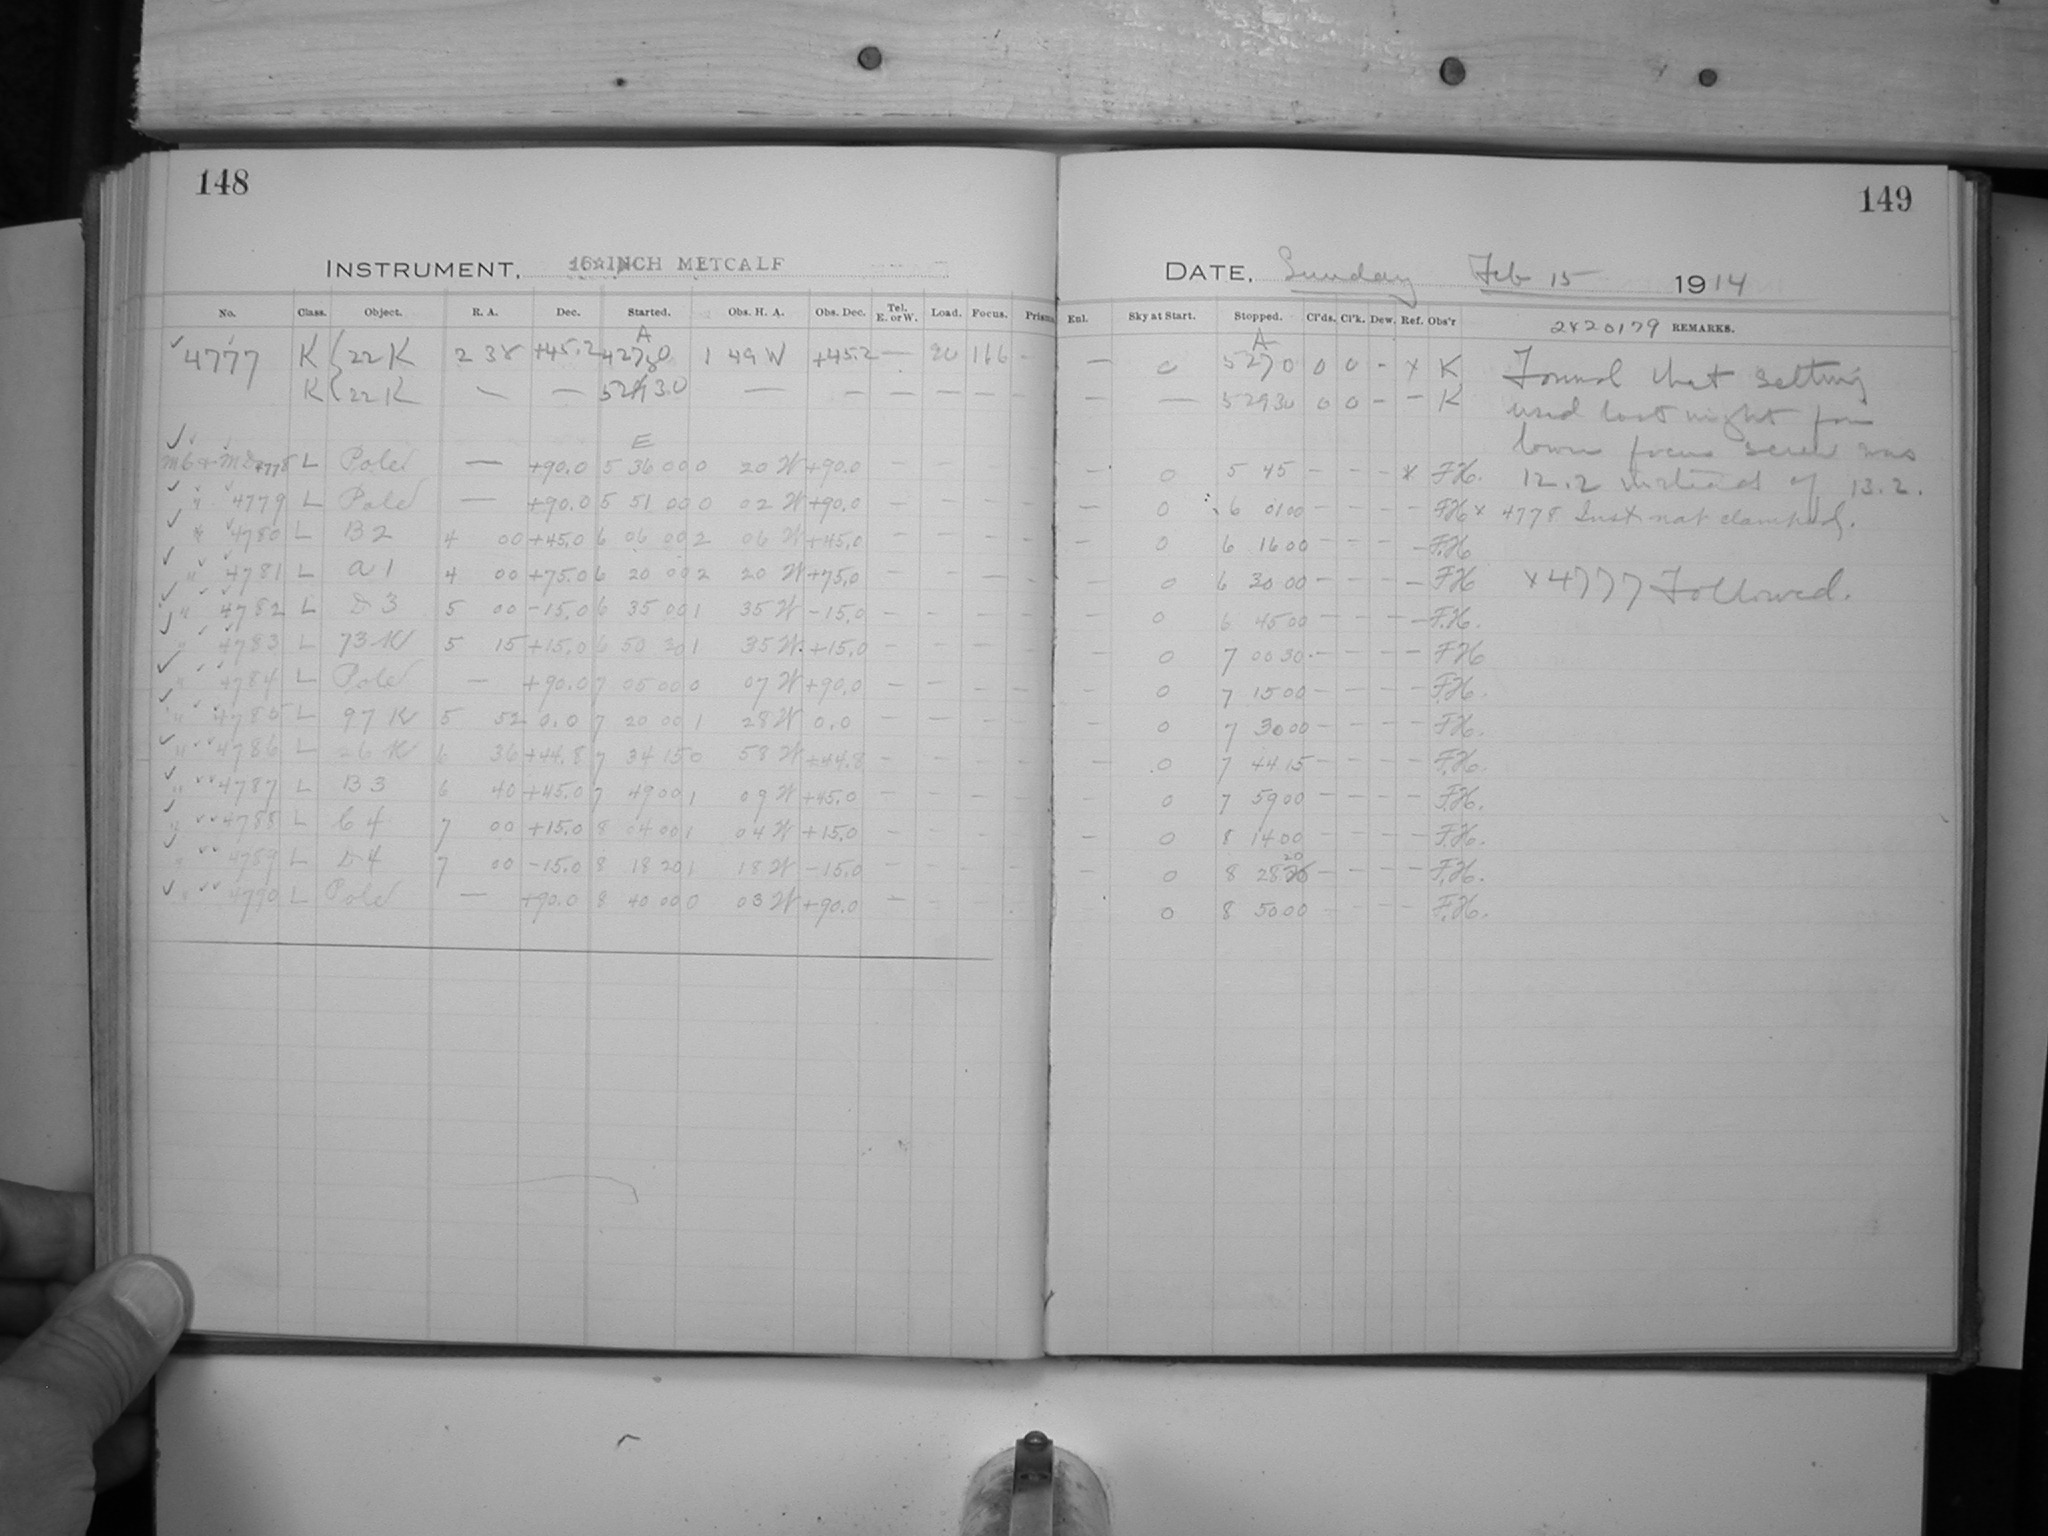 148
149
INSTRUMENT, 16-INCH METCALF
DATE, Sunday Feb 15 1914
No. Class. Object. R. A. Dec. Started. Obs. H. A. Obs. Dec. Tel. E. or W. Load. Focus. Prism.
Enl. Sky at Start. Stopped. Cl'ds. Cl'k. Dew. Ref. Obs'r 2420179 REMARKS.
A A
4777 K 22 K 2 38 +45.2 1 49 W +45.2 — 20 166 - — 0 5270 0 0 - x K Found that setting
K 22 K — — — — — — — - — — 52930 0 0 - — K used last night for
E lower focus screw was
4778 L Pole — +90.0 5 36 00 0 20 W +90.0 — — 0 5 45 — — — x F.H. 12.2 instead of 13.2.
" 4779 L Pole — +90.0 5 51 00 0 02 W +90.0 — — 0 6 01 00 — — — — F.H. x 4778 Inst. not clamped.
" 4780 L B 2 4 00 +45.0 6 06 00 2 06 W +45.0 — — 0 6 16 00 — — — — F.H.
" 4781 L a 1 4 00 +75.0 6 20 00 2 20 W +75.0 — — 0 6 30 00 — — — — F.H. x 4777 Followed.
" 4782 L D 3 5 00 -15.0 6 35 00 1 35 W -15.0 — — 0 6 45 00 — — — — F.H.
" 4783 L 73 K 5 15 +15.0 6 50 30 1 35 W +15.0 — — 0 7 00 30 — — — — F.H.
" 4784 L Pole — +90.0 7 05 00 0 07 W +90.0 — — 0 7 15 00 — — — — F.H.
" 4785 L 97 K 5 52 0.0 7 20 00 1 28 W 0.0 — — 0 7 30 00 — — — — F.H.
" 4786 L 26 K 6 36 +44.8 7 34 15 0 58 W +44.8 — — 0 7 44 15 — — — — F.H.
" 4787 L B 3 6 40 +45.0 7 49 00 1 09 W +45.0 — — 0 7 59 00 — — — — F.H.
" 4788 L C 4 7 00 +15.0 8 04 00 1 04 W +15.0 — — 0 8 14 00 — — — — F.H.
" 4789 L D 4 7 00 -15.0 8 18 20 1 18 W -15.0 — — 0 8 28 20 — — — — F.H.
" 4790 L Pole — +90.0 8 40 00 0 03 W +90.0 — — 0 8 50 00 — — — — F.H.